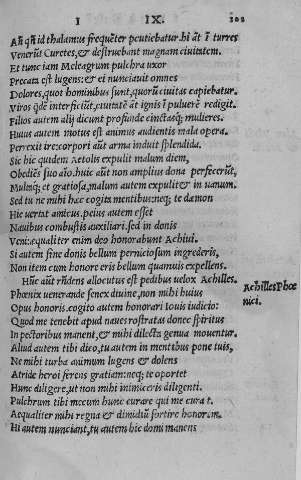 I IX. 102
Añ q̃ñ id thalamus frequẽter pcutiebatur.hi ãt ĩ turres
Venerũt Curetes,& destruebant magnam ciuitatem.
Et tunc iam Meleagrum pulchra uxor
Precata est lugens:& ei nunciauit omnes
Dolores,quot hominibus sunt,quorũ ciuitas capiebatur.
Viros q̃dẽ interficiũt,ciuitatẽ ãt ignis ĩ puluerẽ redigit.
Filios autem alij dicunt profunde cinctasq; mulieres.
Huius autem motus est animus audientis mala opera.
Perrexit ire:corpori aũt arma induit splendida.
Sic hic quidem Aetolis expulit malum diem,
Obediẽs suo aĩo.huic aũt non amplius dona perfecerũt,
Multaq; et gratiosa,malum autem expulit et in uanum.
Sed tu ne mihi hæc cogita mentibus:neq; te dæmon
Hic uertat amice.peius autem esset
Nauibus combustis auxiliari.sed in donis
Veni:æqualiter enim deo honorabunt Achiui.
Si autem sine donis bellum perniciosum ingrederis,
Non item cum honore eris bellum quamuis expellens.
Hũc aũt rñdens allocutus est pedibus uelox Achilles.
Achilles Phœ
Phœnix uenerande senex diuine,non mihi huius
nici.
Opus honoris.cogito autem honorari Iouis iudicio:
Quod me tenebit apud naues rostratas donec spiritus
In pectoribus manent,& mihi dilecta genua mouentur.
Aliud autem tibi dico,tu autem in mentibus pone tuis,
Ne mihi turba animum lugens & dolens
Atridæ heroi ferens gratiam:neq; te oportet
Hunc diligere,ut non mihi inimiceris diligenti.
Pulchrum tibi mecum hunc curare qui me curat.
Aequaliter mihi regna & dimidiũ sortire honorem.
Hi autem nunciant,tu autem hic domi manens